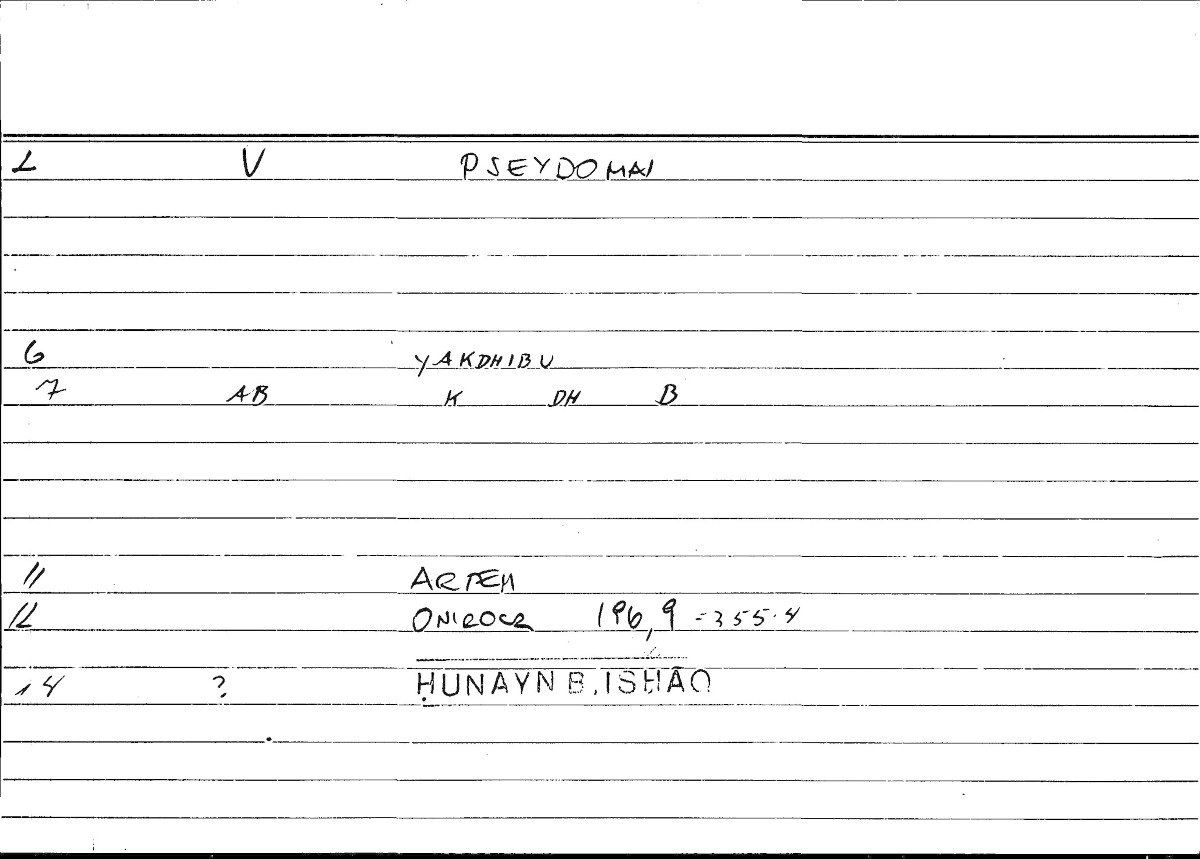 2 V PSEYDOMAI
6 YAKDHIBU
7 AB K DH B
11 ARTEM
12 ONIROCR 196,9 = 355.4
14 ? ḤUNAYN B. ISḤĀQ